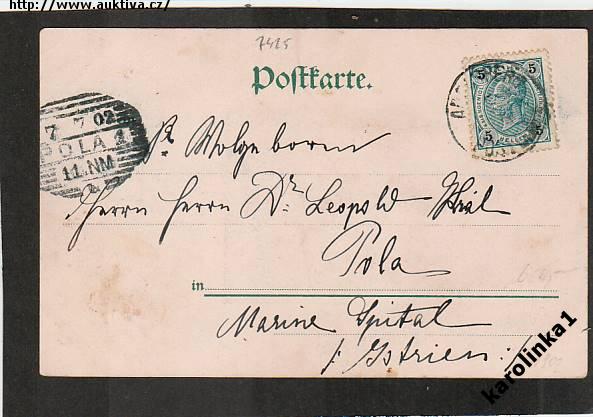 http://www.auktiva.cz/
7425
Postkarte.
7 7 02
POLA 1
11.NM
5 5
5 5
Wolgeboren
Herrn Herrn Dr. Leopold
Pola
in
Marine Spital
/: Istrien :/
karolinka1